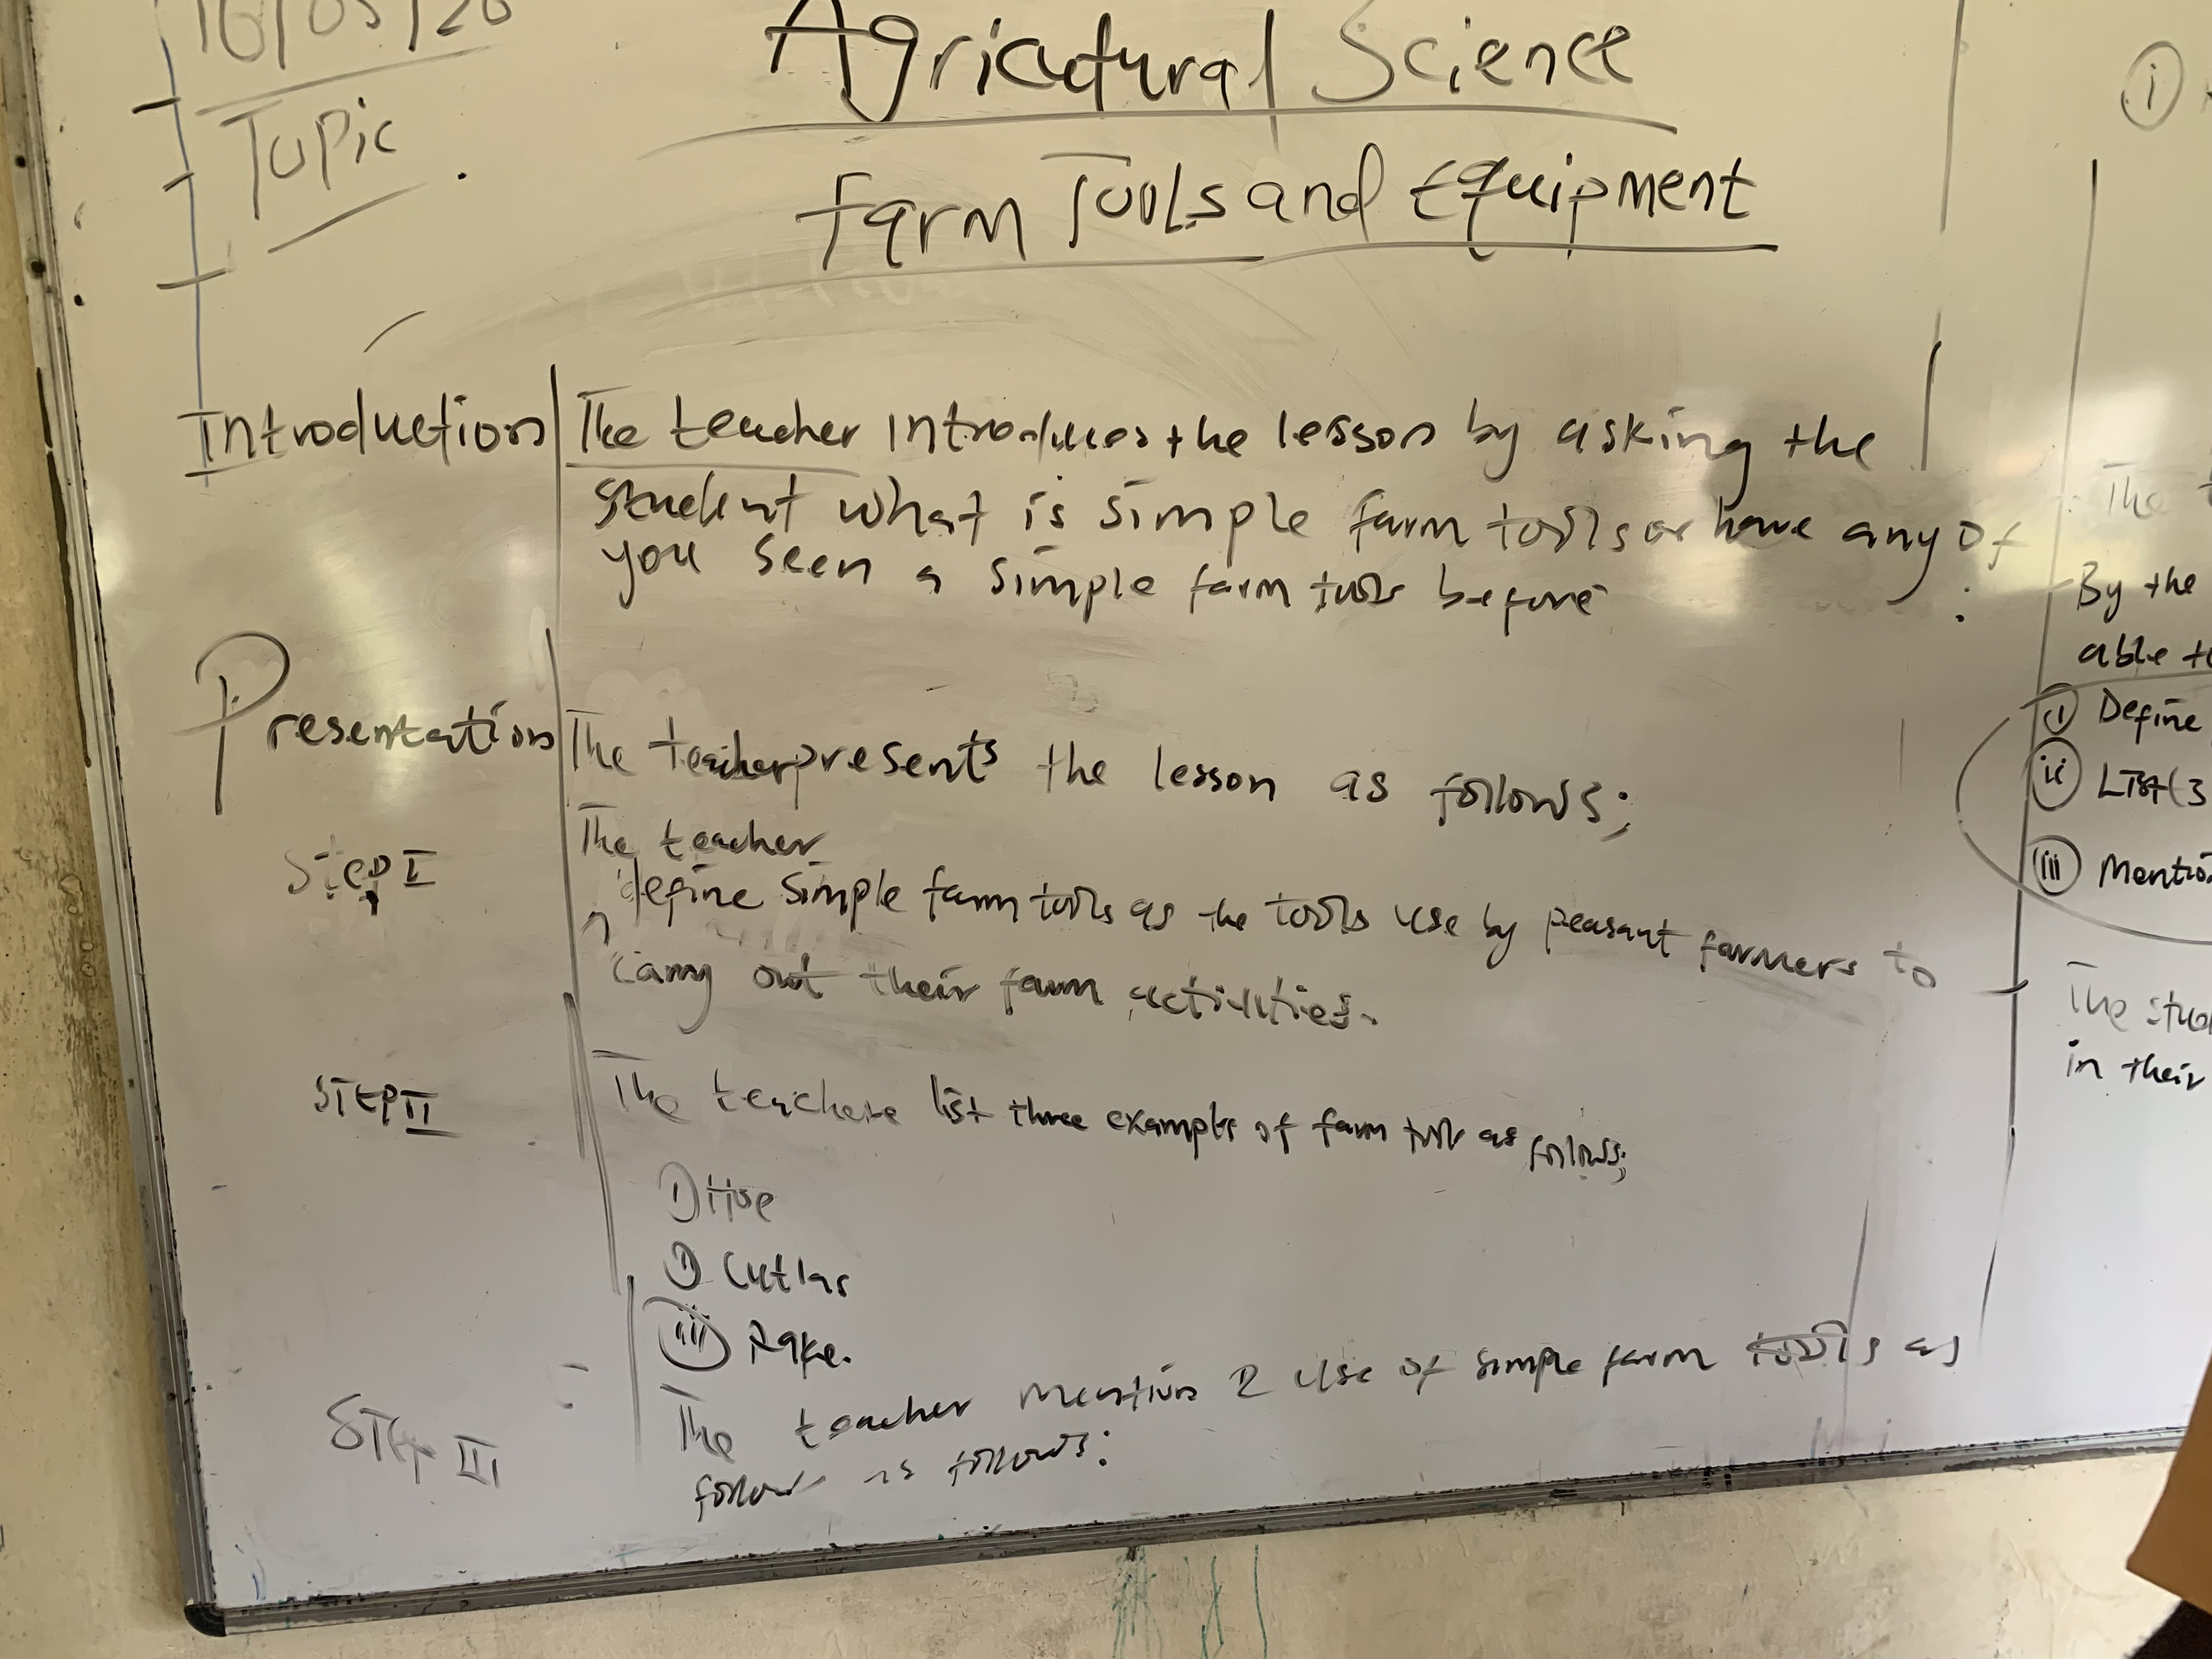 16/05/20
Agricutural Science
Topic
Farm Tools and Equipment
Introduction The teacher introduces the lesson by asking the
student what is simple farm tools or have any of
you seen a simple farm tools before
Presentation The teacher presents the lesson as follows;
Step I The teacher
define simple farm tools as the tools use by peasant farmers to
carry out their farm activities.
STEP II The teachere list three examples of farm tool as follows;
i Hoe
Cutlas
iii Rake.
STEP III The teacher mention 2 use of simple farm tools as
follows as follows:
i
The
By the
able to
i Define
ii List(3
iii Mention
The stude
in their